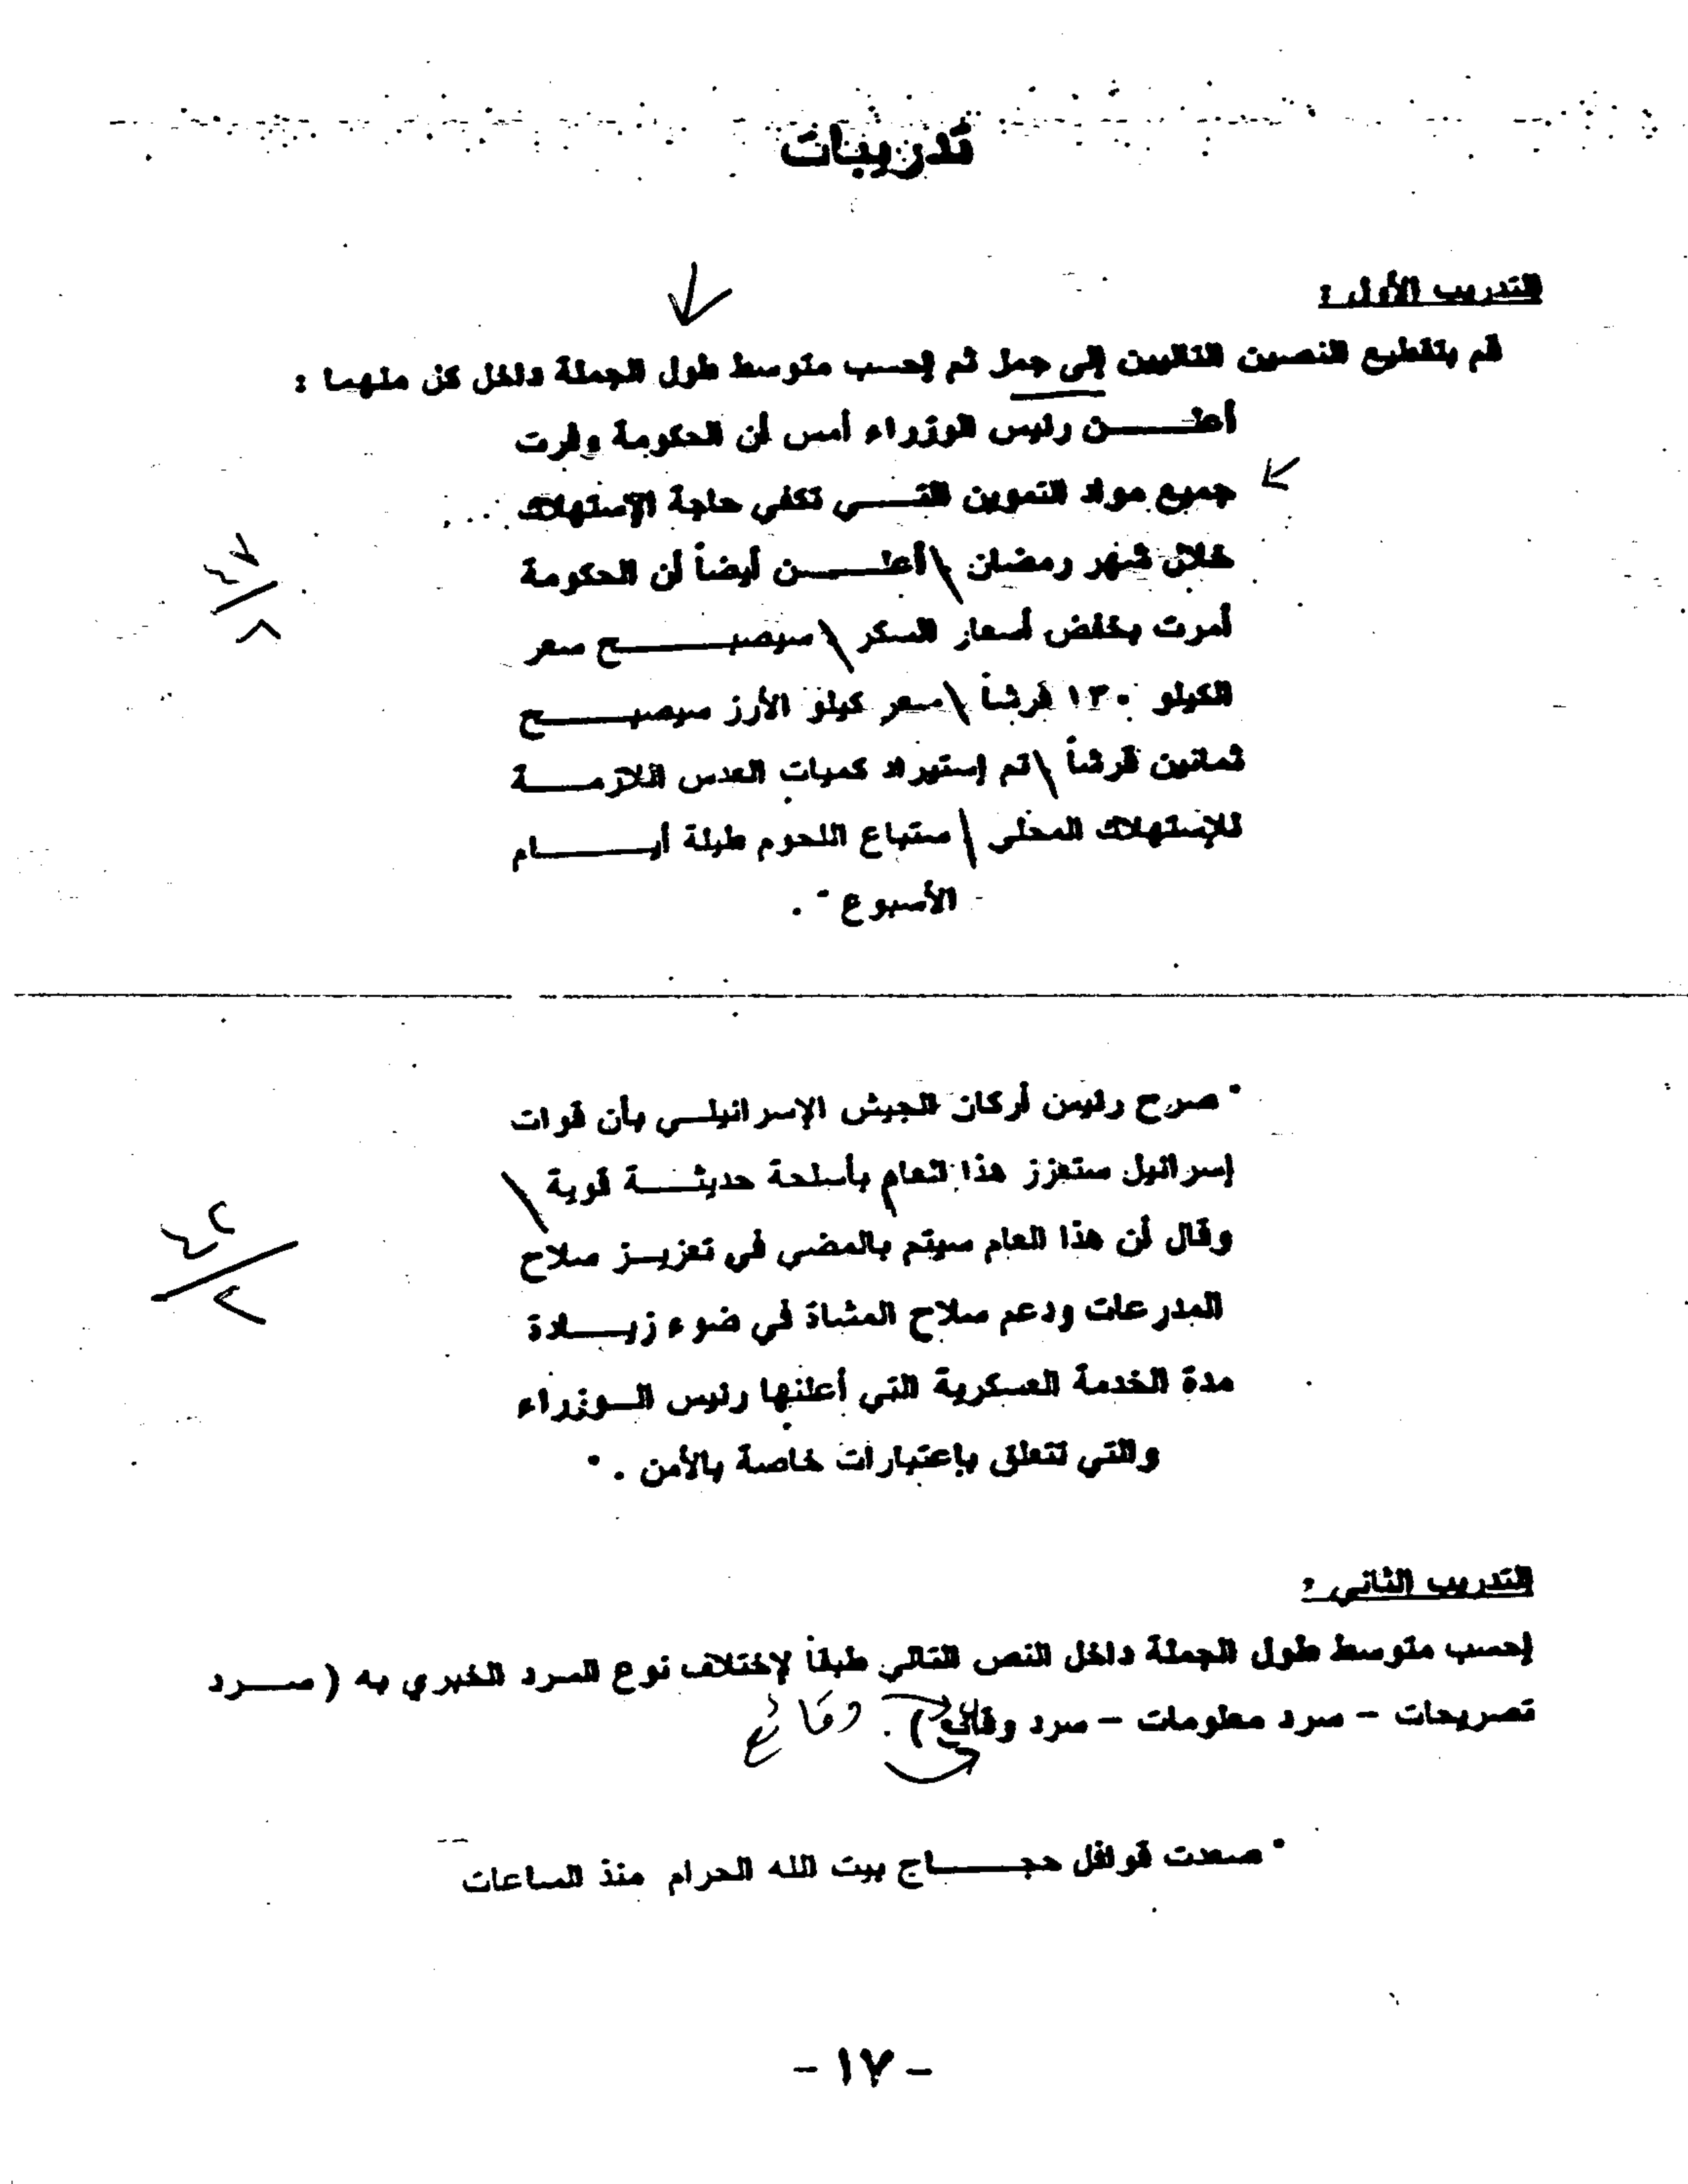 تدريبات
التدريب الأول :
قم بتقطيع النصين التاليين إلى جمل ثم إحسب متوسط طول الجملة داخل كل منهما :
أعلـــن رئيس الوزراء أمس أن الحكومة وفرت
جميع مواد التموين التـــي تكفي حاجة الإستهلاك
خلال شهر رمضان \ أعلـــن أيضاً أن الحكومة
أمرت بخفض أسعار السكر \ سيصبـــح سعر
الكيلو ١٣٠ قرشاً \ سعر كيلو الأرز سيصبـــح
ثمانين قرشاً \ تم إستيراد كميات العدس اللازمـــة
للإستهلاك المحلى \ ستباع اللحوم طيلة أيـــام
الأسبوع " .
" صرح رئيس أركان الجيش الإسرائيلــي بأن قوات
إسرائيل ستعزز هذا العام بأسلحة حديثـــة قوية \
وقال أن هذا العام سيتم بالمضى في تعزيــز سلاح
٤٢
٢
المدرعات ودعم سلاح المشاة في ضوء زيـــادة
مدة الخدمة العسكرية التي أعلنها رئيس الــوزراء
والتي تتعلق بإعتبارات خاصة بالأمن . "
التدريب الثاني :
إحسب متوسط طول الجملة داخل النص التالي طبقاً لإختلاف نوع السرد الخبري به ( ســرد
تصريحات - سرد معلومات - سرد وقائع ) . وقائع
" صعدت قوافل حجـــاج بيت الله الحرام منذ الساعات
- ١٧ -